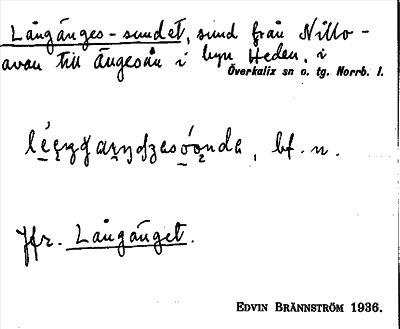 Långänges-sundet, sund från Nitto-
avan till Ängesån i byn Heden, i
Överkalix sn o. tg. Norrb. l.
bf. n.
Jfr. Långänget.
EDVIN BRÄNNSTRÖM 1936.